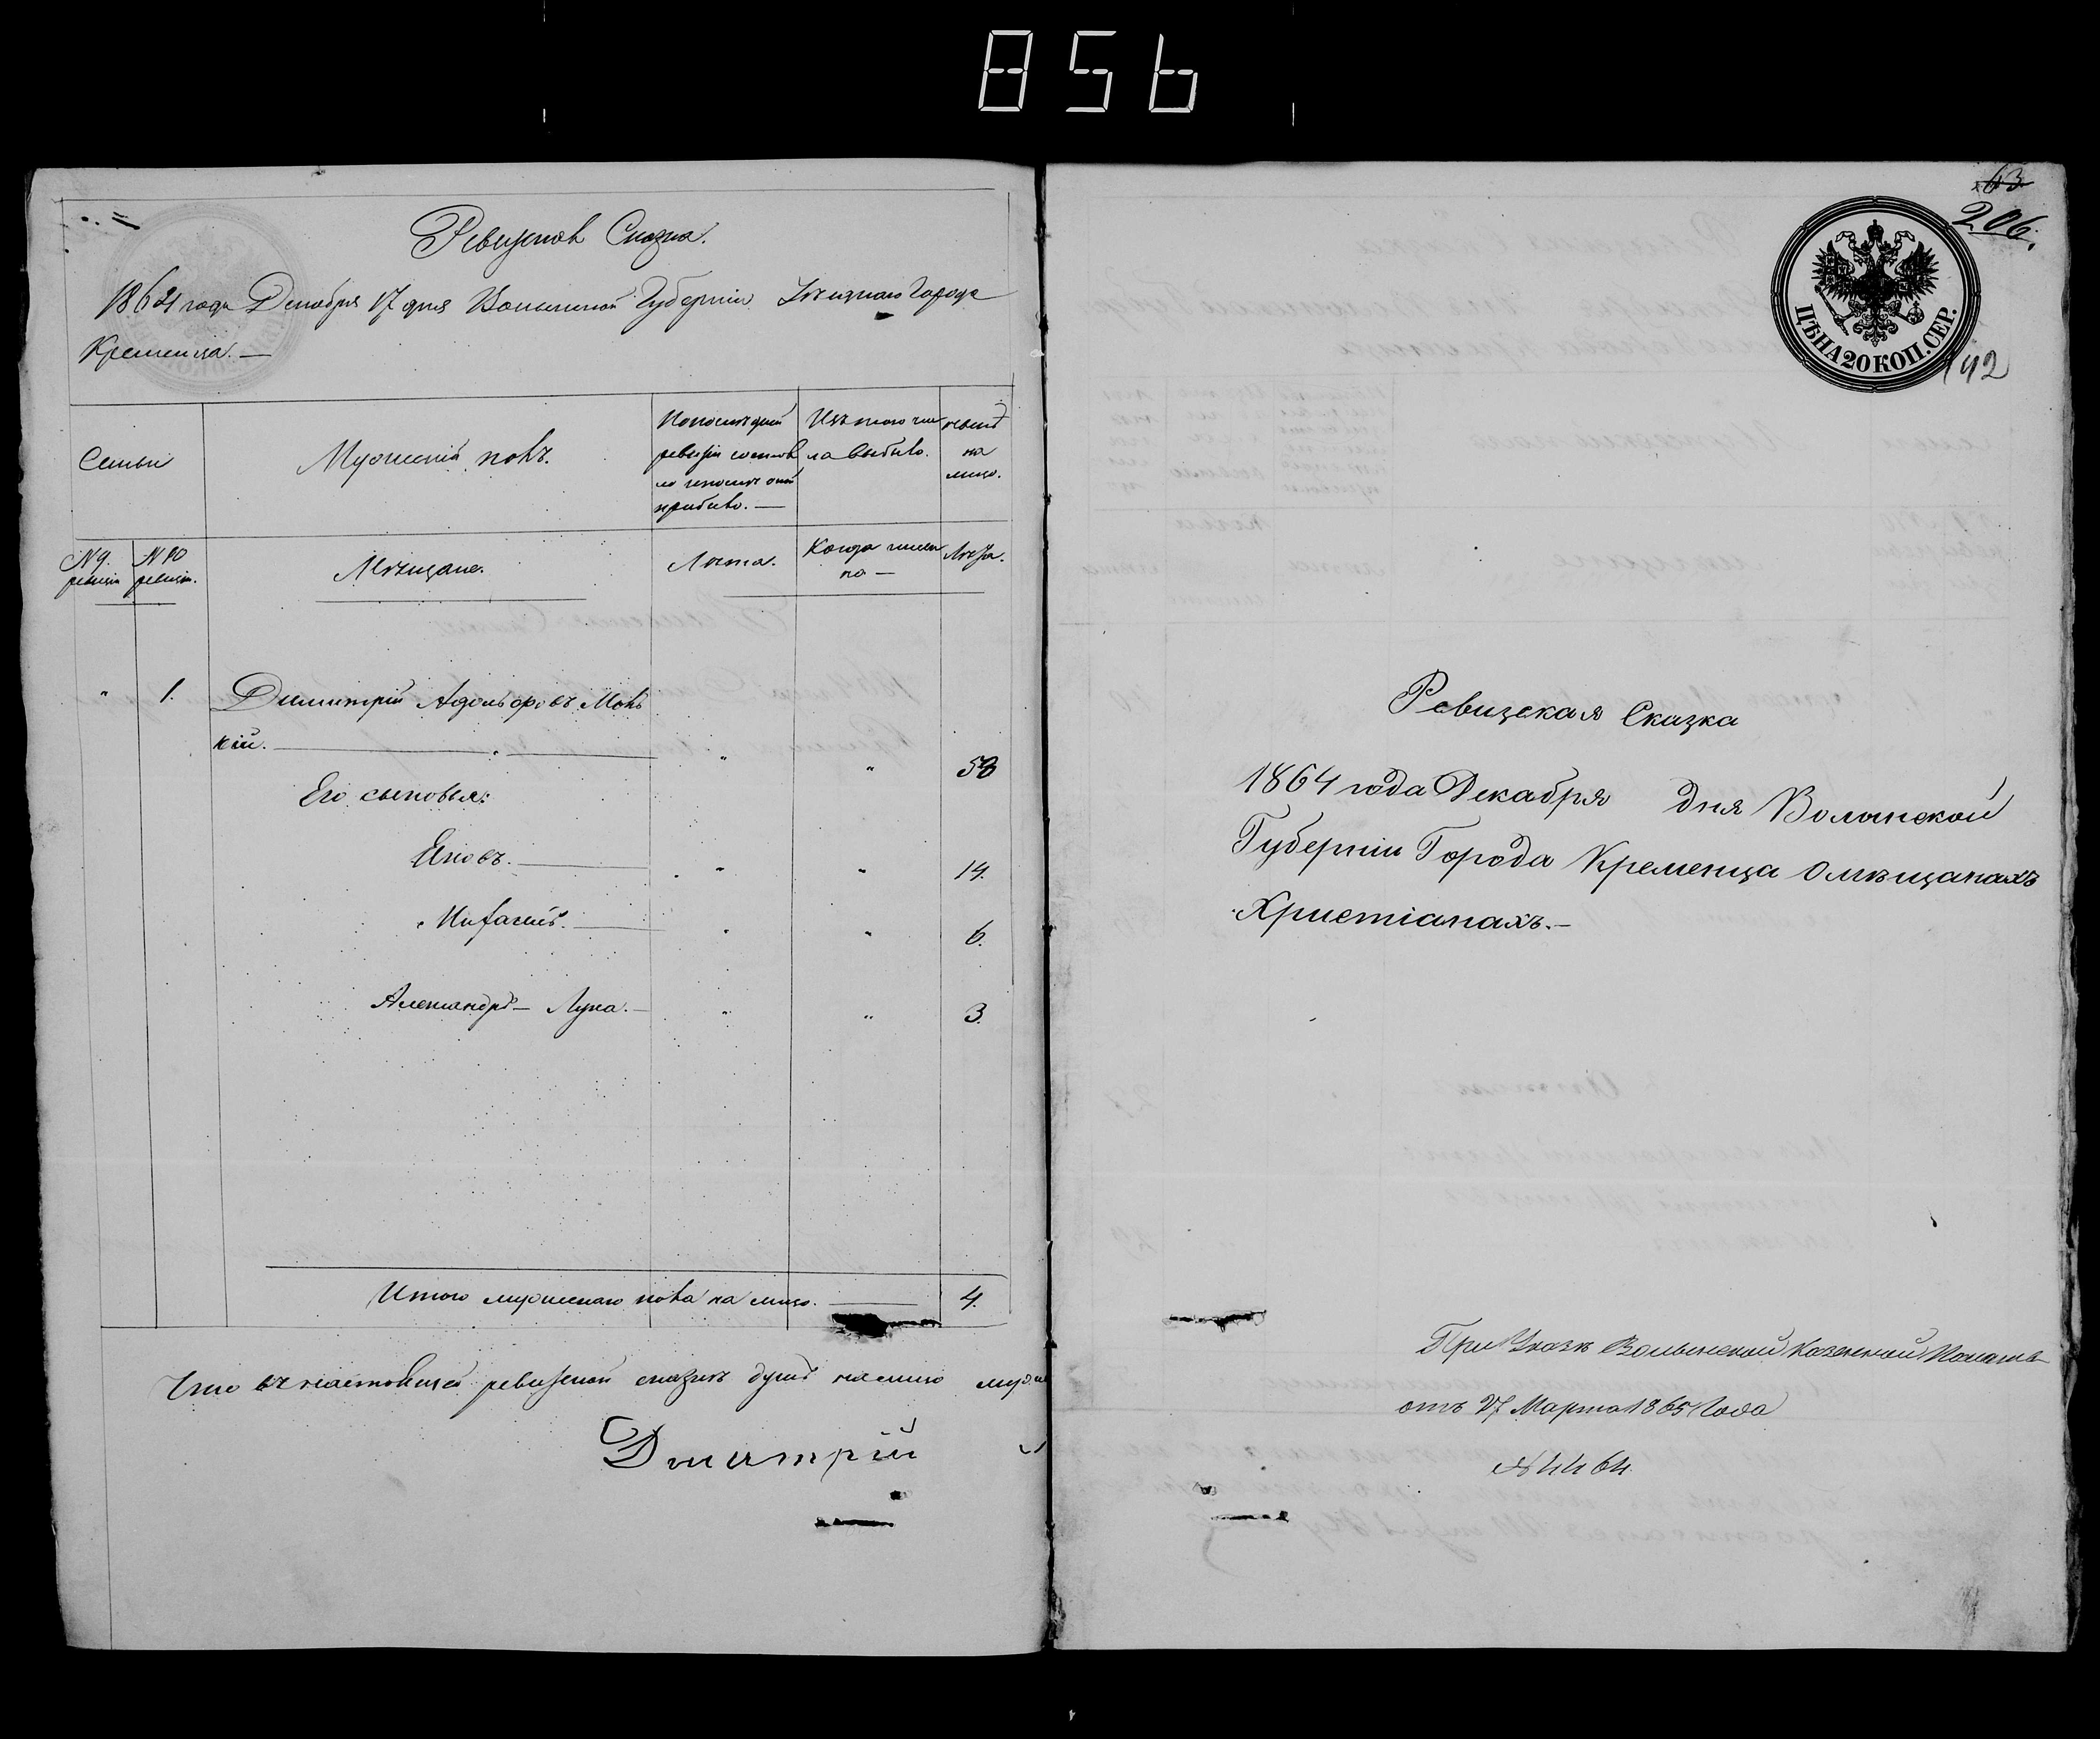 856
Ревизская Сказка.
1864 года Декабря 17 дня Волынской Губерніи Уѣзднаго Города
Кременца. —
Семьи
Мужескій полъ.
По послѣдней
ревизіи состоя
ло и послѣ оной
прибыло. —
Изъ того чис
ла выбыло.
нынѣ
на
лицо.
№ 9.
ревизіи
№ 10
ревизіи.
Мѣщане.
Лѣта.
Когда имен
но —
Лѣта.
" 1. Димитрій Адольфовъ
кій. " " 58
Его сыновья:
Яковъ. " " 14.
" " 6.
Александръ — Лука. — " " 3.
Итого мужескаго пола на лицо. 4.
Что въ настоящей ревизской сказкѣ душъ на лицо муж
Дмитрій
63
206.
ЦѢНА 20 КОП. СЕР.
142
Ревизская Сказка
1864 года Декабря дня Волынской
Губерніи Города Кременца о мѣщанахъ
Христіанахъ. —
При Указѣ Волынской Казенной Палаты
отъ 27 Марта 1865 Года
№ 4464